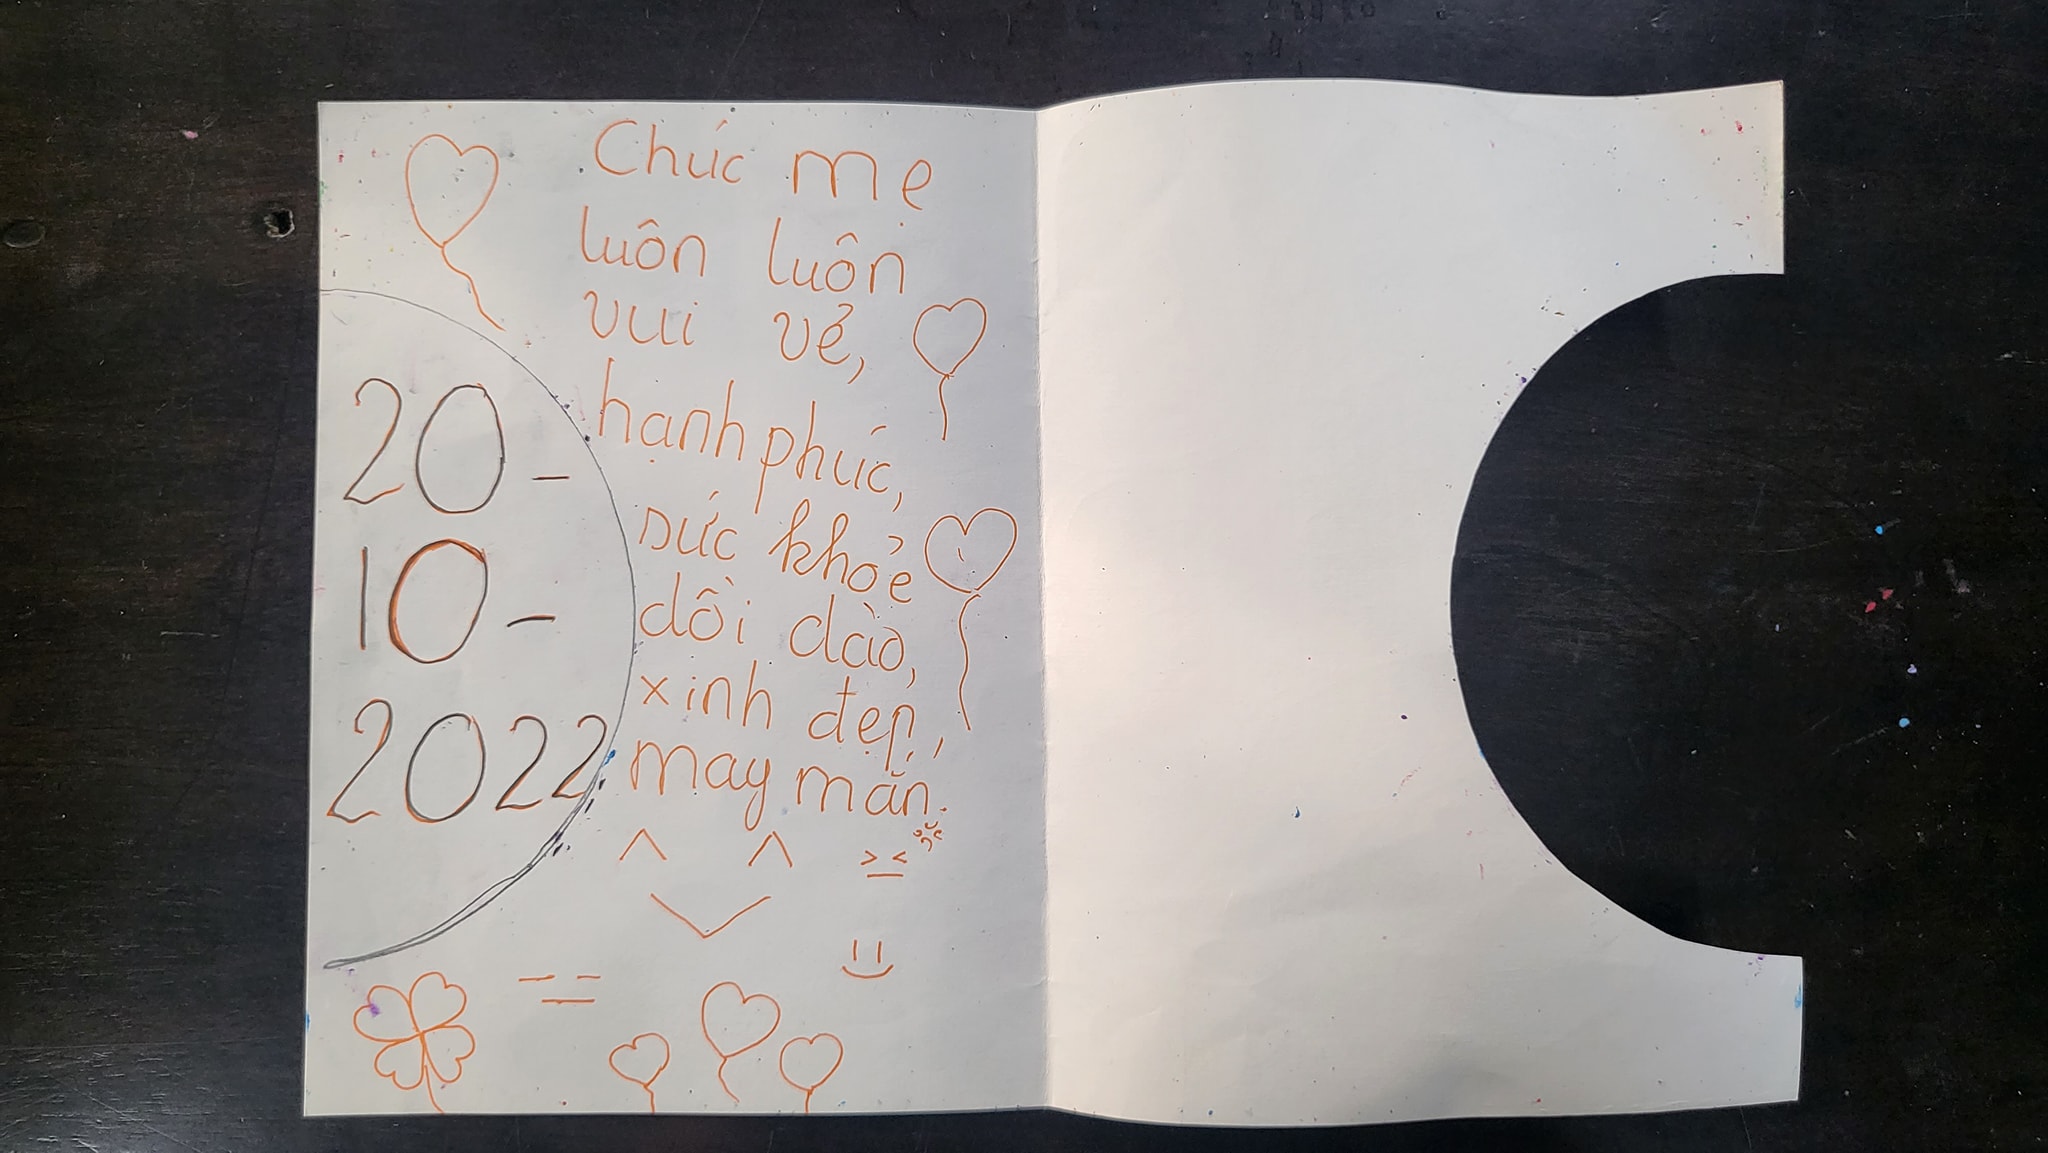 Chúc mẹ
luôn luôn
vui vẻ,
hạnh phúc,
sức khỏe
dồi dào,
xinh đẹp,
may mắn.
20-
10-
2022